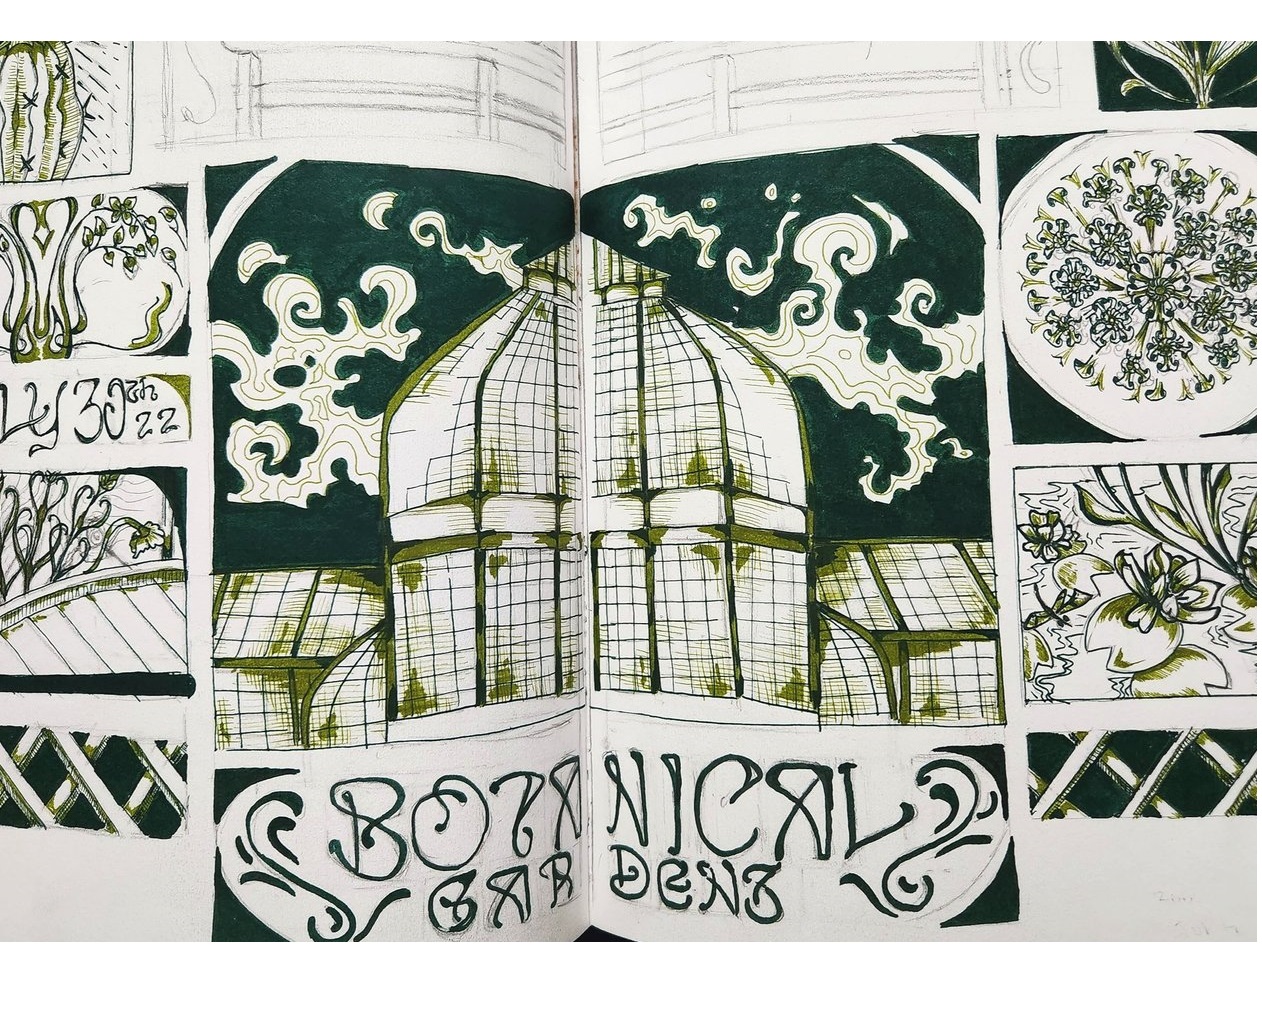 LY 30th
22
BOTANICAL
GARDENS